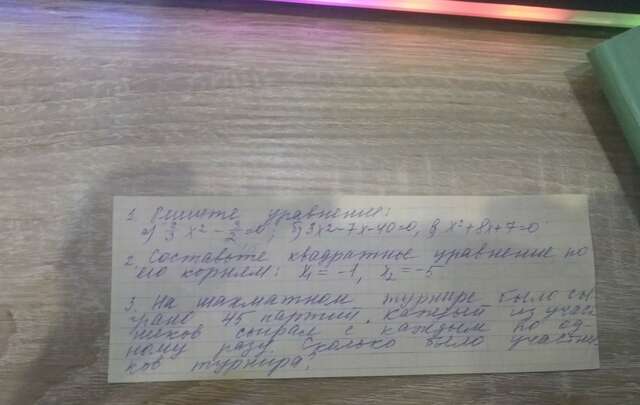 1. Решите уравнение:
а) 2/3 x² - 3/2 = 0; б) 3x² - 7x - 40 = 0, в) x² + 8x + 7 = 0
2. Составьте квадратные уравнение по
его корням: x₁ = -1, x₂ = -5
3. На шахматном турнире было сы
грано 45 партий. каждый из учас
тников сыграл с каждым по од-
ному разу. Сколько было участни
ков турнира?